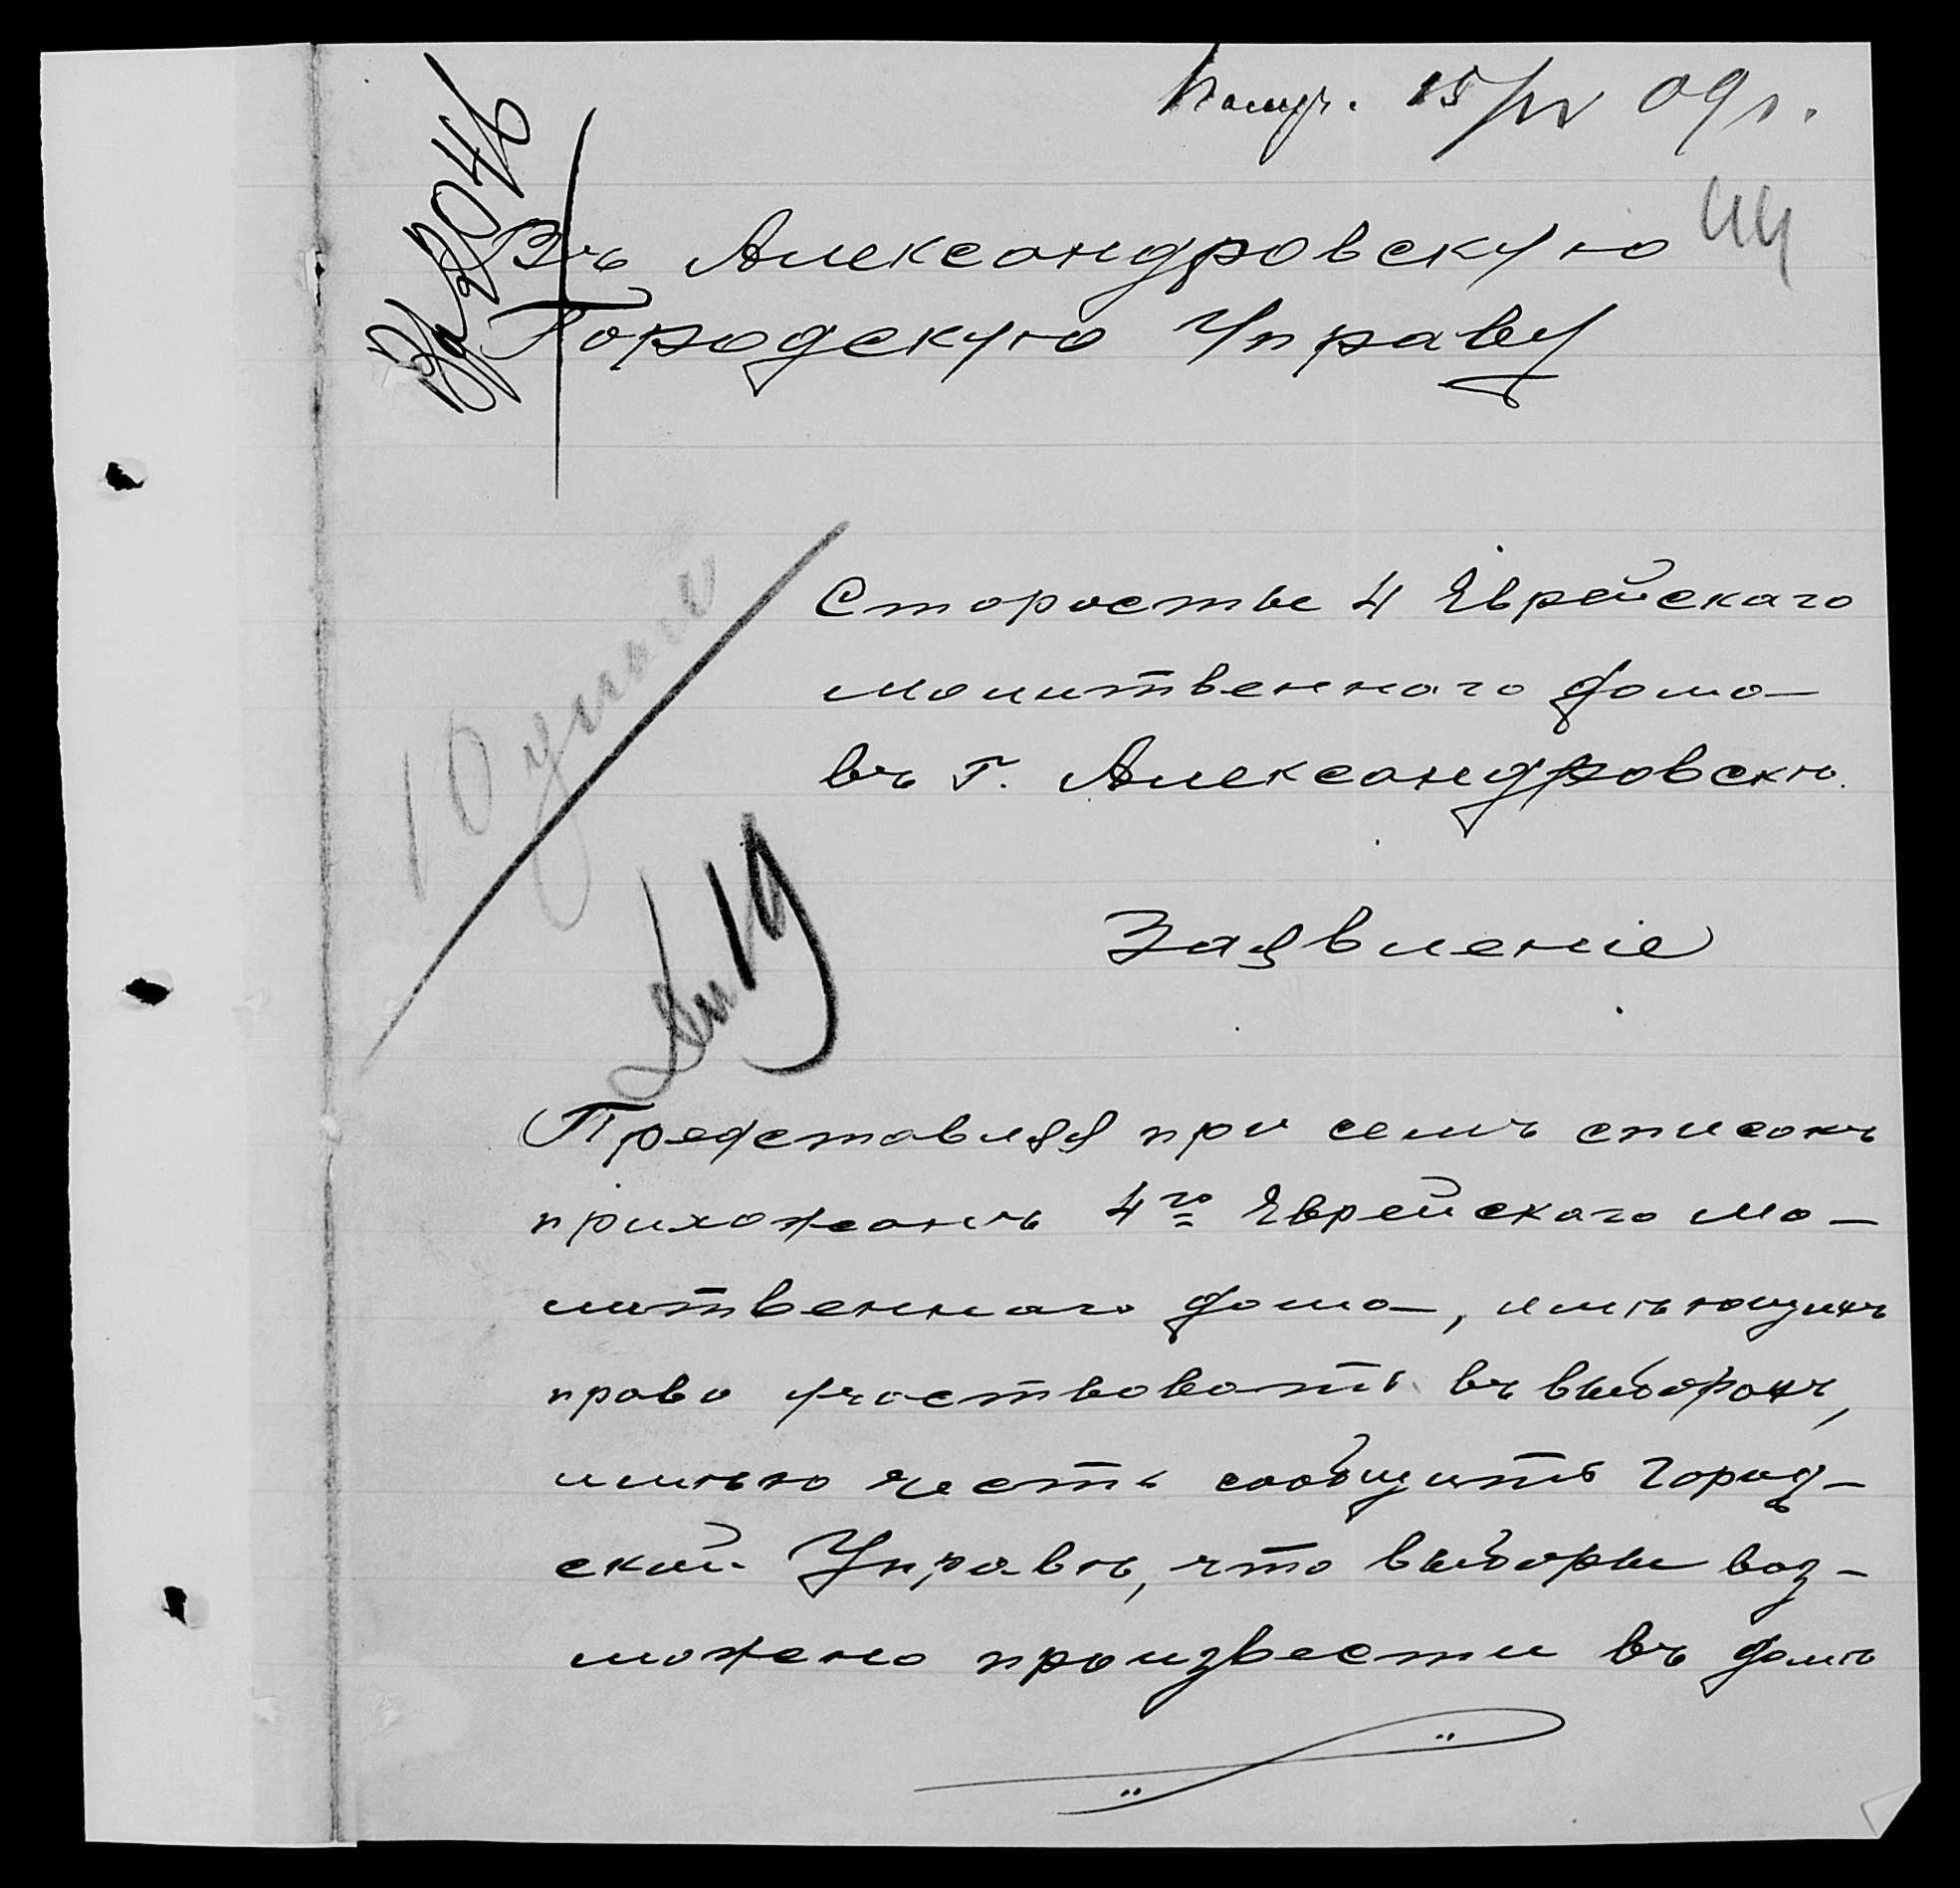 Получ. 15/IV 09 г.
44
Вх 2046
Въ Александровскую
Городскую Управу
10 утра
Старосты 4 Еврейскаго
молитвеннаго дома
въ г. Александровскѣ.
19
Заявленіе
Представляя при семъ списокъ
прихожанъ 4го Еврейскаго мо-
литвеннаго дома, имѣющихъ
право участвовать въ выборахъ,
имѣю честь сообщить Город-
ской Управѣ, что выборы воз-
можено произвести въ домѣ